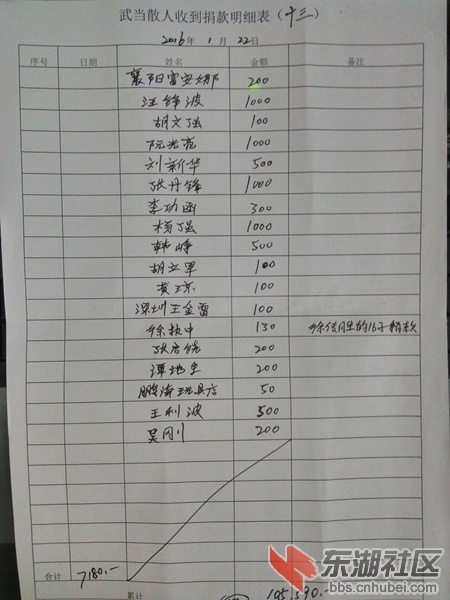 武当散人收到捐款明细表（十三）
2016年1月22日
序号 日期 姓名 金额 备注
襄阳雷安娜 200
汪锋波 1000
胡文强 100
阮光亮 1000
刘新华 500
张丹锋 1000
李功函 300
杨强 1000
韩峥 500
胡立军 100
黄琼 100
深圳王金雷 100
徐执中 130
张启 200
谭地生 200
鹏涛玩具店 50
王利波 500
吴刚 200
合计 7180.-
累计 195,530.-
东湖社区
bbs.cnhubei.com